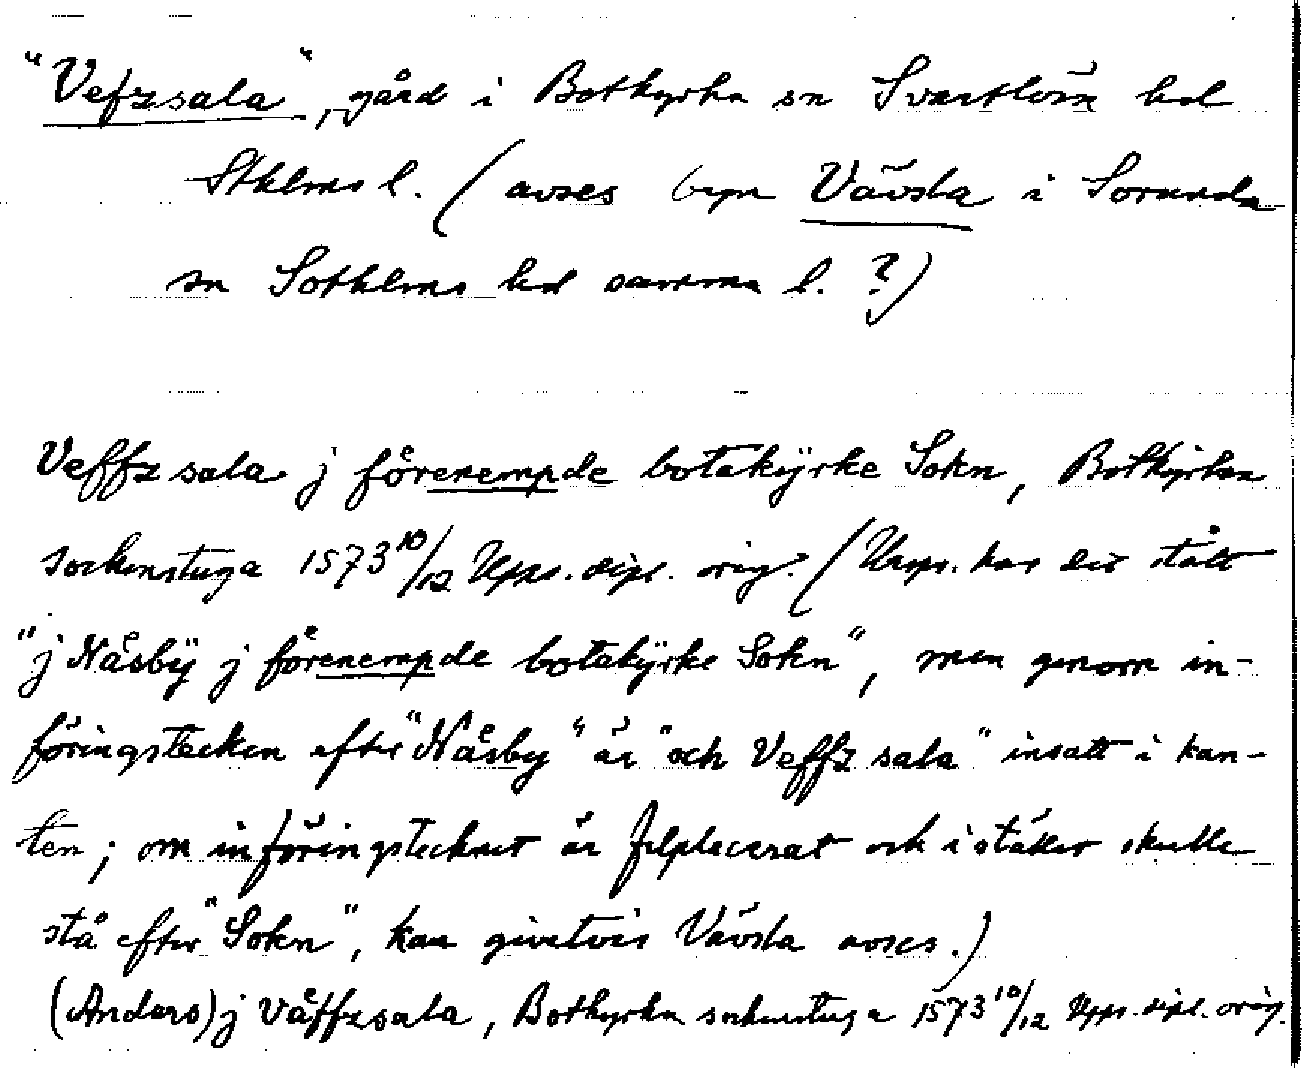 "Vefzsala", gård i Botkyrka sn Svartlösa hd
Sthlms l. (avses byn Vävsta i Sorunda
sn Sotholms hd samma l. ?)
Veffz sala j förenempde botakÿrke Sokn, Botkyrka
sockenstuga 1573 10/12 Upps. dipl. orig. (Urspr. har det stått
"j Nåsbÿ j förenempde botakÿrke Sokn", men genom in-
föringstecken efter "Nåsbÿ" är "och Veffz sala" insatt i kan-
ten; om införingstecknet är felplacerat och i stället skulle
stå efter "Sokn", kan givetvis Vävsta avses.)
(Anders) j Våffzsala, Botkyrka sockenstuga 1573 10/12 Upps. dipl. orig.